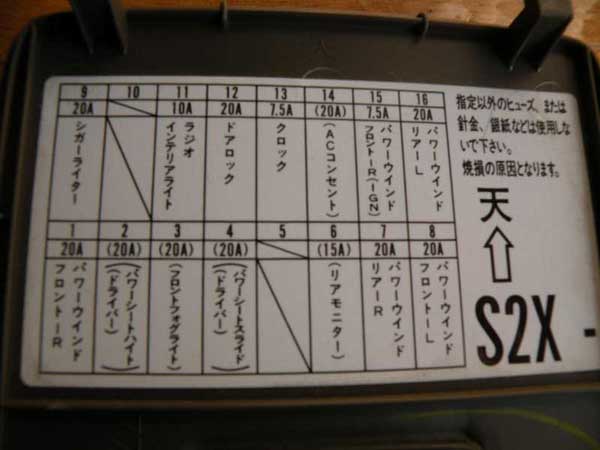 9 10 11 12 13 14 15 16
20A 10A 20A 7.5A (20A) 7.5A 20A
シガーライター
ラジオ
インテリアライト
ドアロック
クロック
(ACコンセント)
パワーウインド
フロントーR(IGN)
パワーウインド
リアーL
1 2 3 4 5 6 7 8
20A (20A) (20A) (20A) (15A) 20A 20A
パワーウインド
フロントーR
(パワーシートハイト)
(ドライバー)
(フロントフォグライト)
(パワーシートスライド)
(ドライバー)
(リアモニター)
パワーウインド
リアーR
パワーウインド
フロントーL
指定以外のヒューズ、または
針金、銀紙などは使用しな
いで下さい。
焼損の原因となります。
天
S2X -